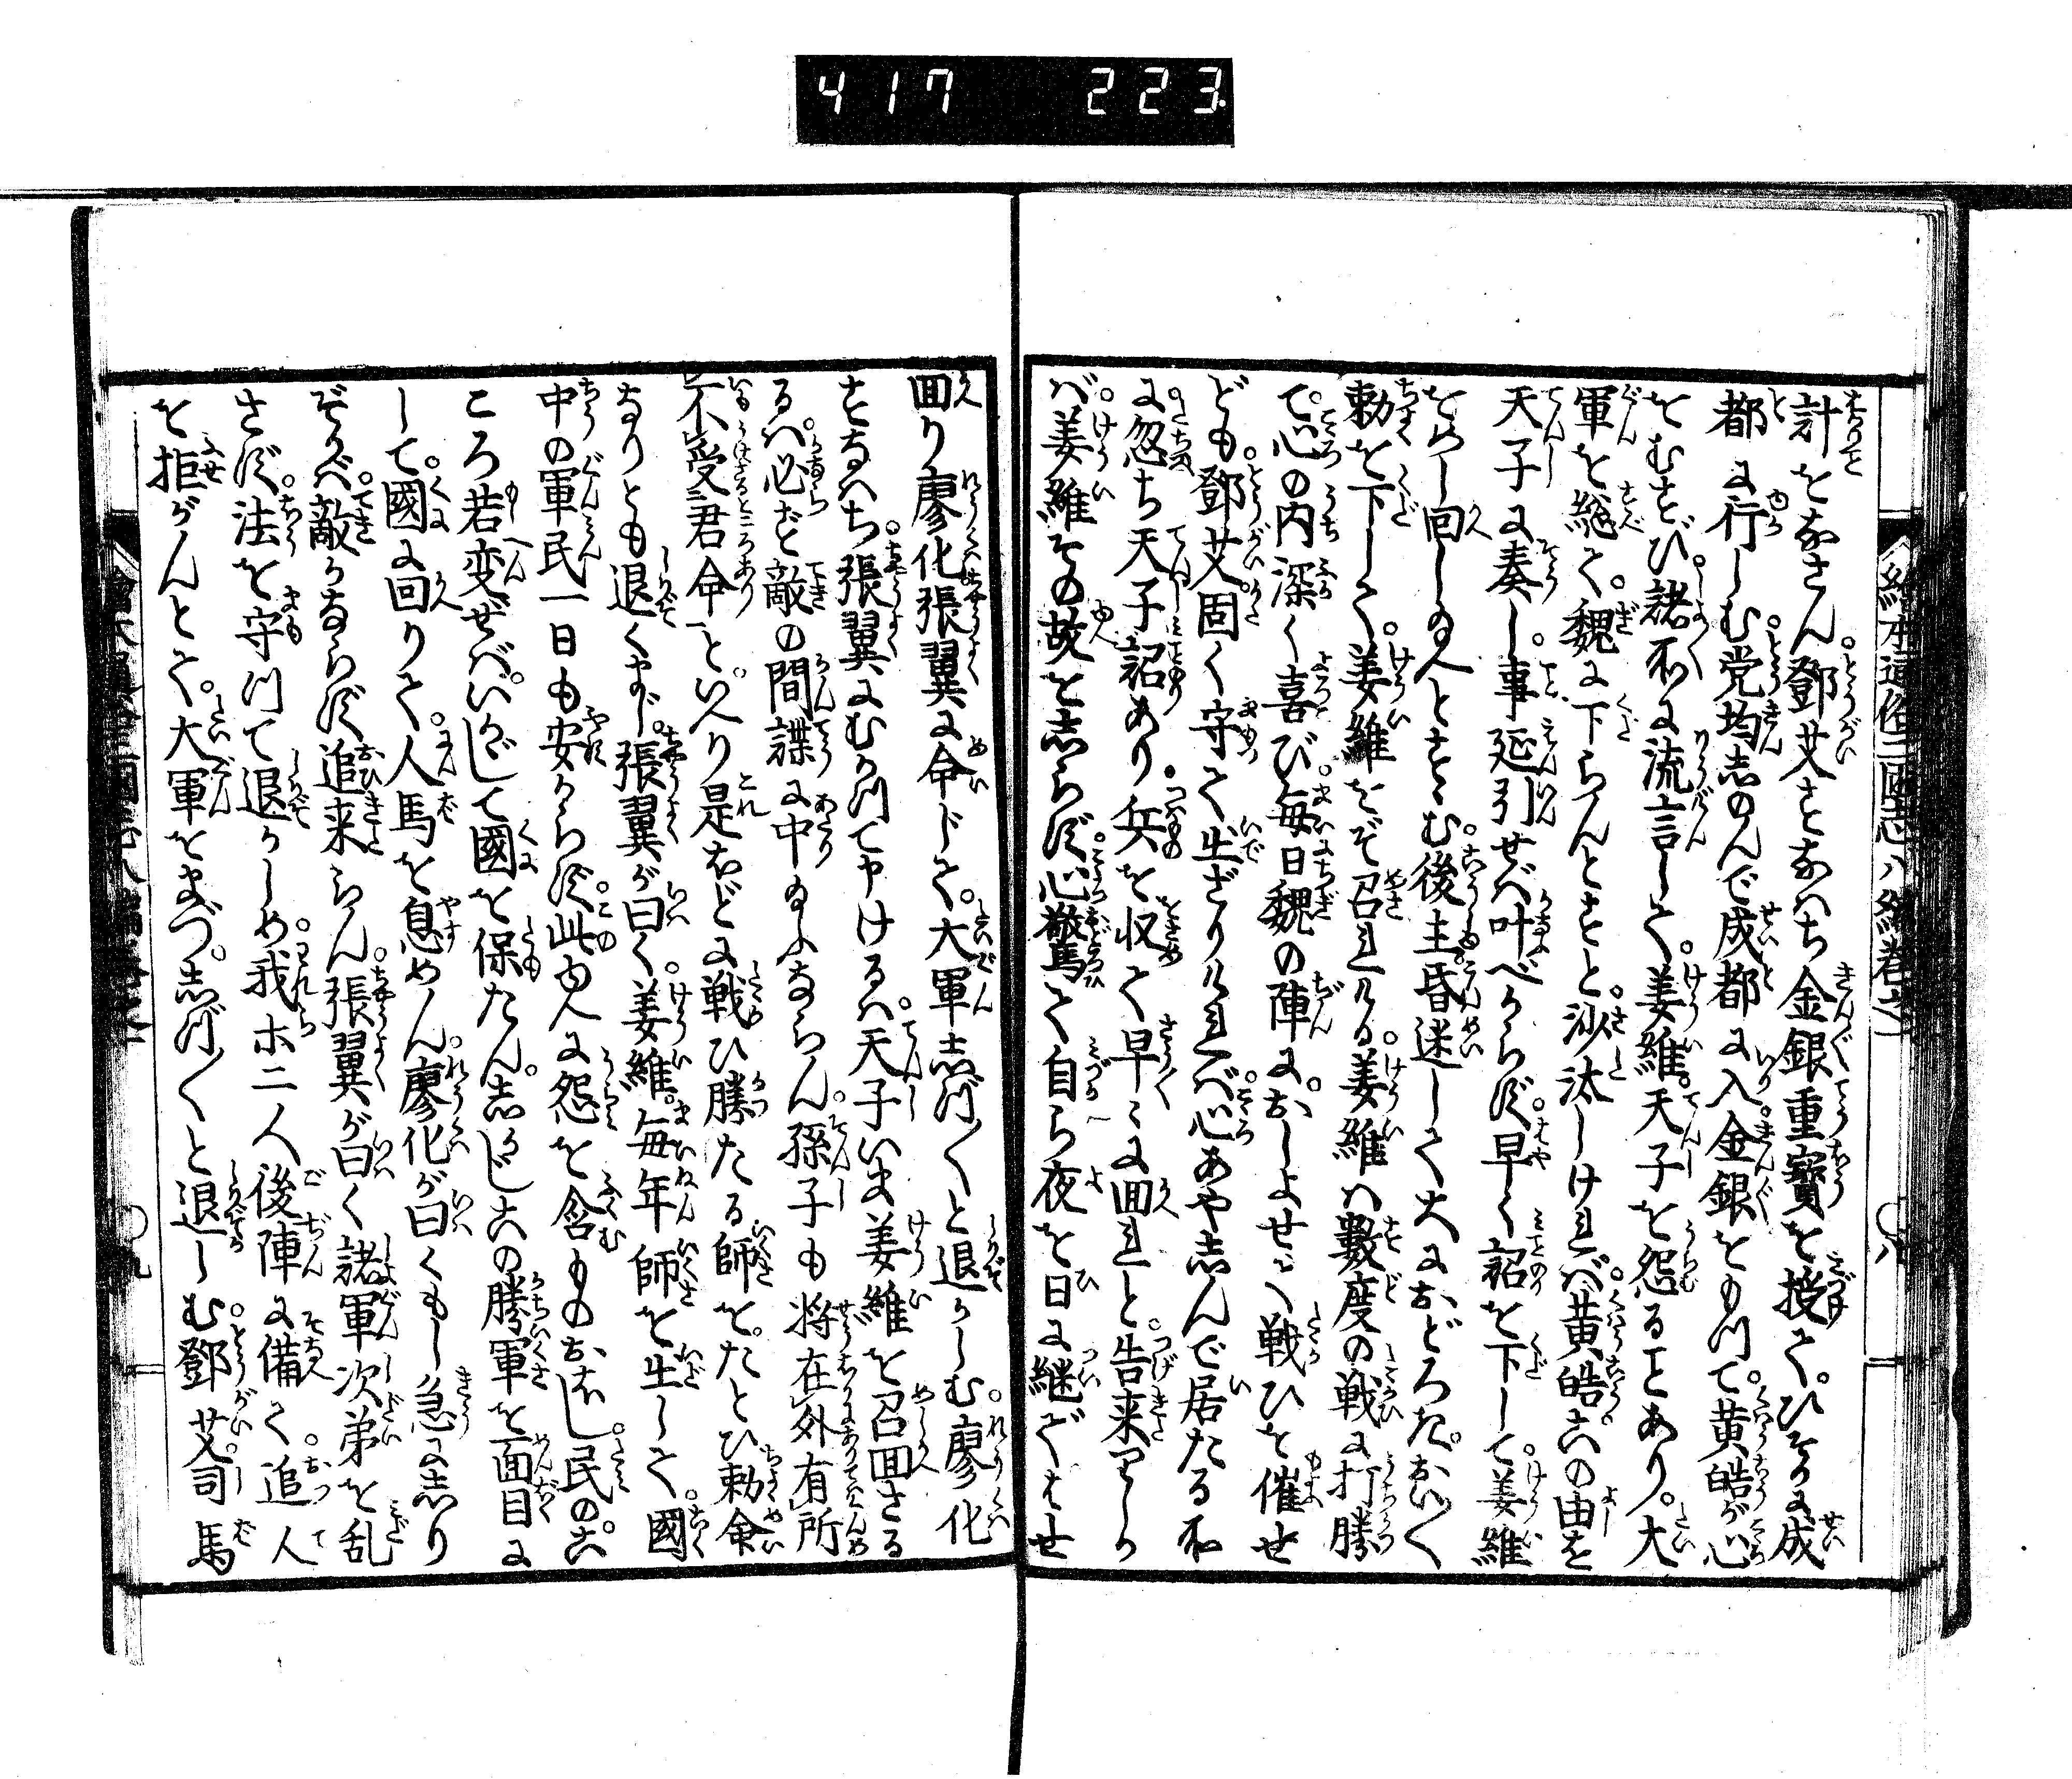 417 223
計をなさん。鄧艾すなはち金銀重寶を授て。ひそかに成
都に行しむ。党均志のんで成都に入。金銀をもつて。黄皓が心
をむすび。諸所に流言して。姜維。天子を怨ることあり。大
軍を総て。魏に下らんとすと。沙汰しければ。黄皓。この由を
天子に奏し。事延引せば叶べからず。早く詔を下して。姜維
をめし回し給へとすゝむ。後主。昏迷して大におどろき。おい〳〵
勅を下して。姜維をぞ召れける。姜維は數度の戦に打勝
て。心の内深く喜び。毎日魏の陣に。おしよせて戦ひを催せ
ども。鄧艾。固く守て生ざりければ。心あや志んで居たる所
に。忽ち天子詔あり。兵を収て早々に回れと。告来りしか
ば。姜維その故を志らず。心驚て自ら夜を日に継ではせ
回り廖化張翼に命じて。大軍志づ〳〵と退かしむ。廖化
すなはち。張翼にむかつて申けるは。天子いま姜維を召回さる
るは。必ず敵の間諜に中給ふならん。孫子も将在外有所
不受君命と。いへり是ほどに戦ひ勝たる師を。たとひ勅命
なりとも退くやと。張翼が曰く。姜維。毎年師を生して。國
中の軍民一日も安からず。此ゆへに怨を含ものおほし。民のこ
ころ若変ぜば。いかゞして國を保たん。志かじこの勝軍を面目に
して。國に回りて。人馬を息めん。廖化が曰くもし急に志り
ぞかば。敵かならず追来らん。張翼が曰く諸軍次弟を乱
さず。法を守つて退かしめ。我ホ二人後陣に備て。追人
を拒がんとて。大軍をまづ。志づ〳〵と退しむ。鄧艾。司馬